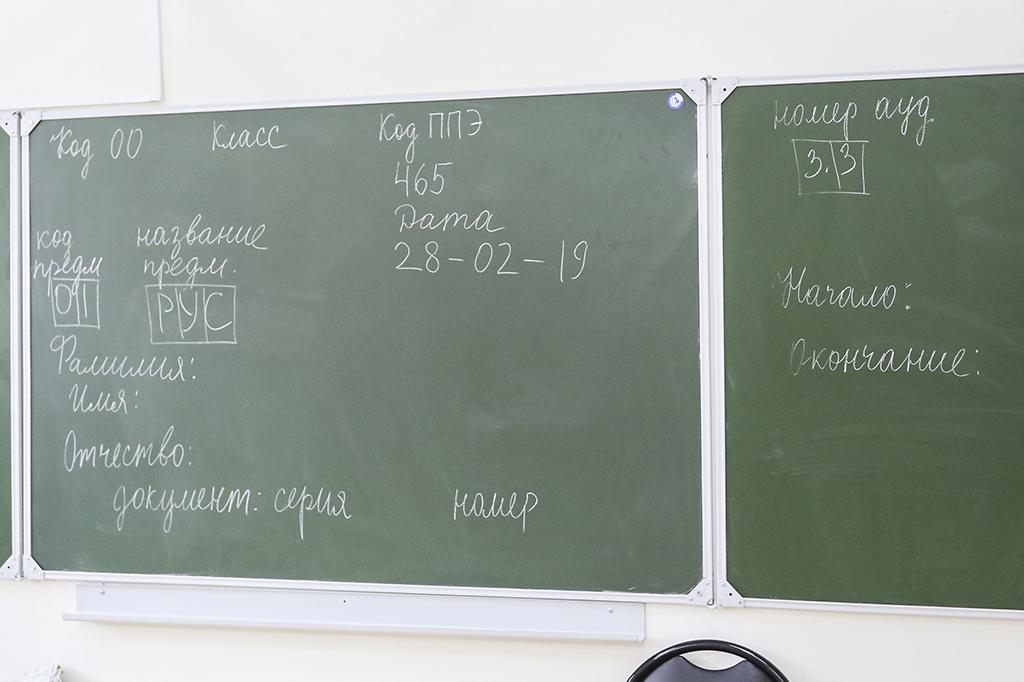 Код ОО Класс Код ППЭ
465
Дата
28-02-19
код название
предм предм.
01 РУС
Фамилия:
Имя:
Отчество:
документ: серия номер
номер ауд
3.3
Начало:
Окончание: